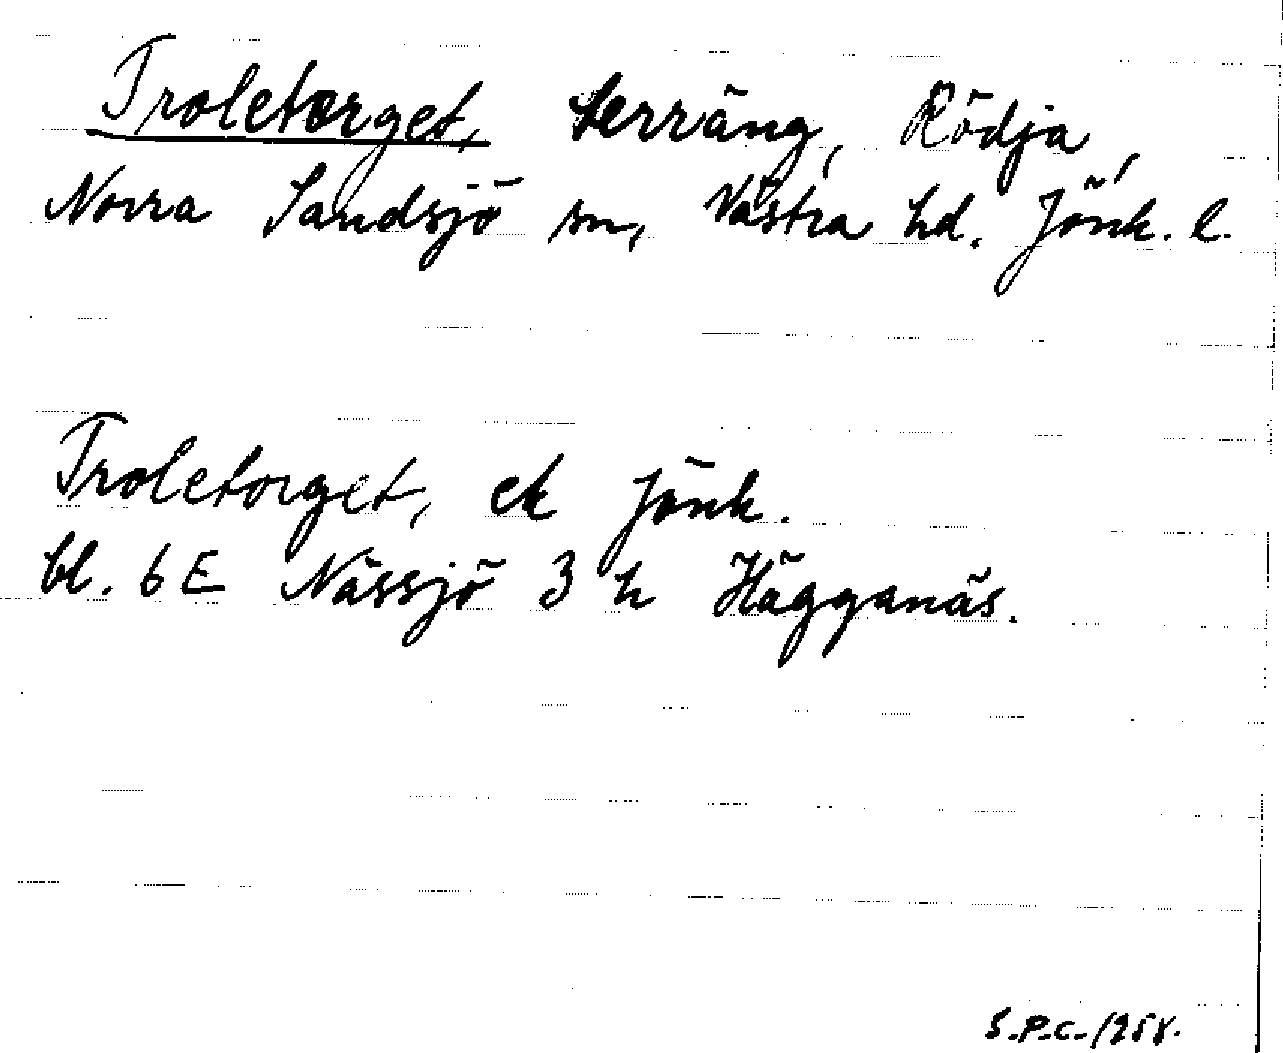 Troletorget, terräng, Rödja,
Norra Sandsjö sn, Västra hd. Jönk. l.
Troletorget, ek Jönk.
bl. 6E Nässjö 3 h Hägganäs.
S.P.C.